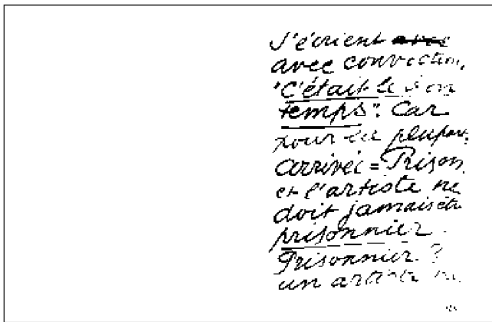 s'écrient avec
avec conviction,
"C'était le bon
temps". Car
pour la plupart
arrivée = Prison,
et l'artiste ne
doit jamais être
prisonnier.
Prisonnier ?
un artiste ne